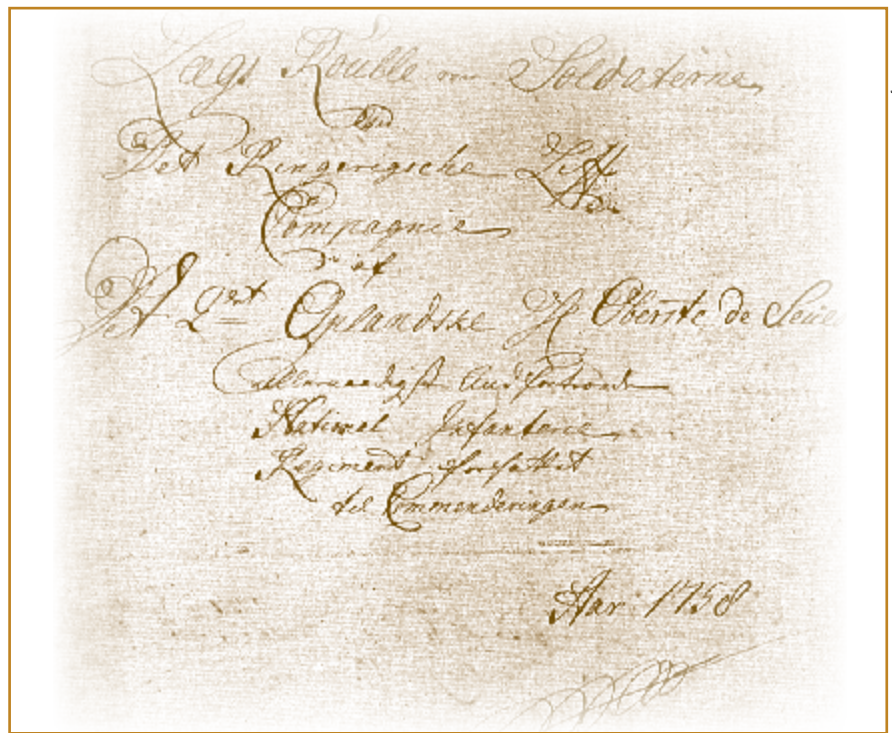 Lægs Roulle over Soldaterne
ved
Det Ringerigsche
Compagnie
af
Det 2det Oplandske Hr Oberste de Seue
allernaadigst anfortroede
National Infanterie
Regiment forfattet
til Commenderingen
Aar 1758